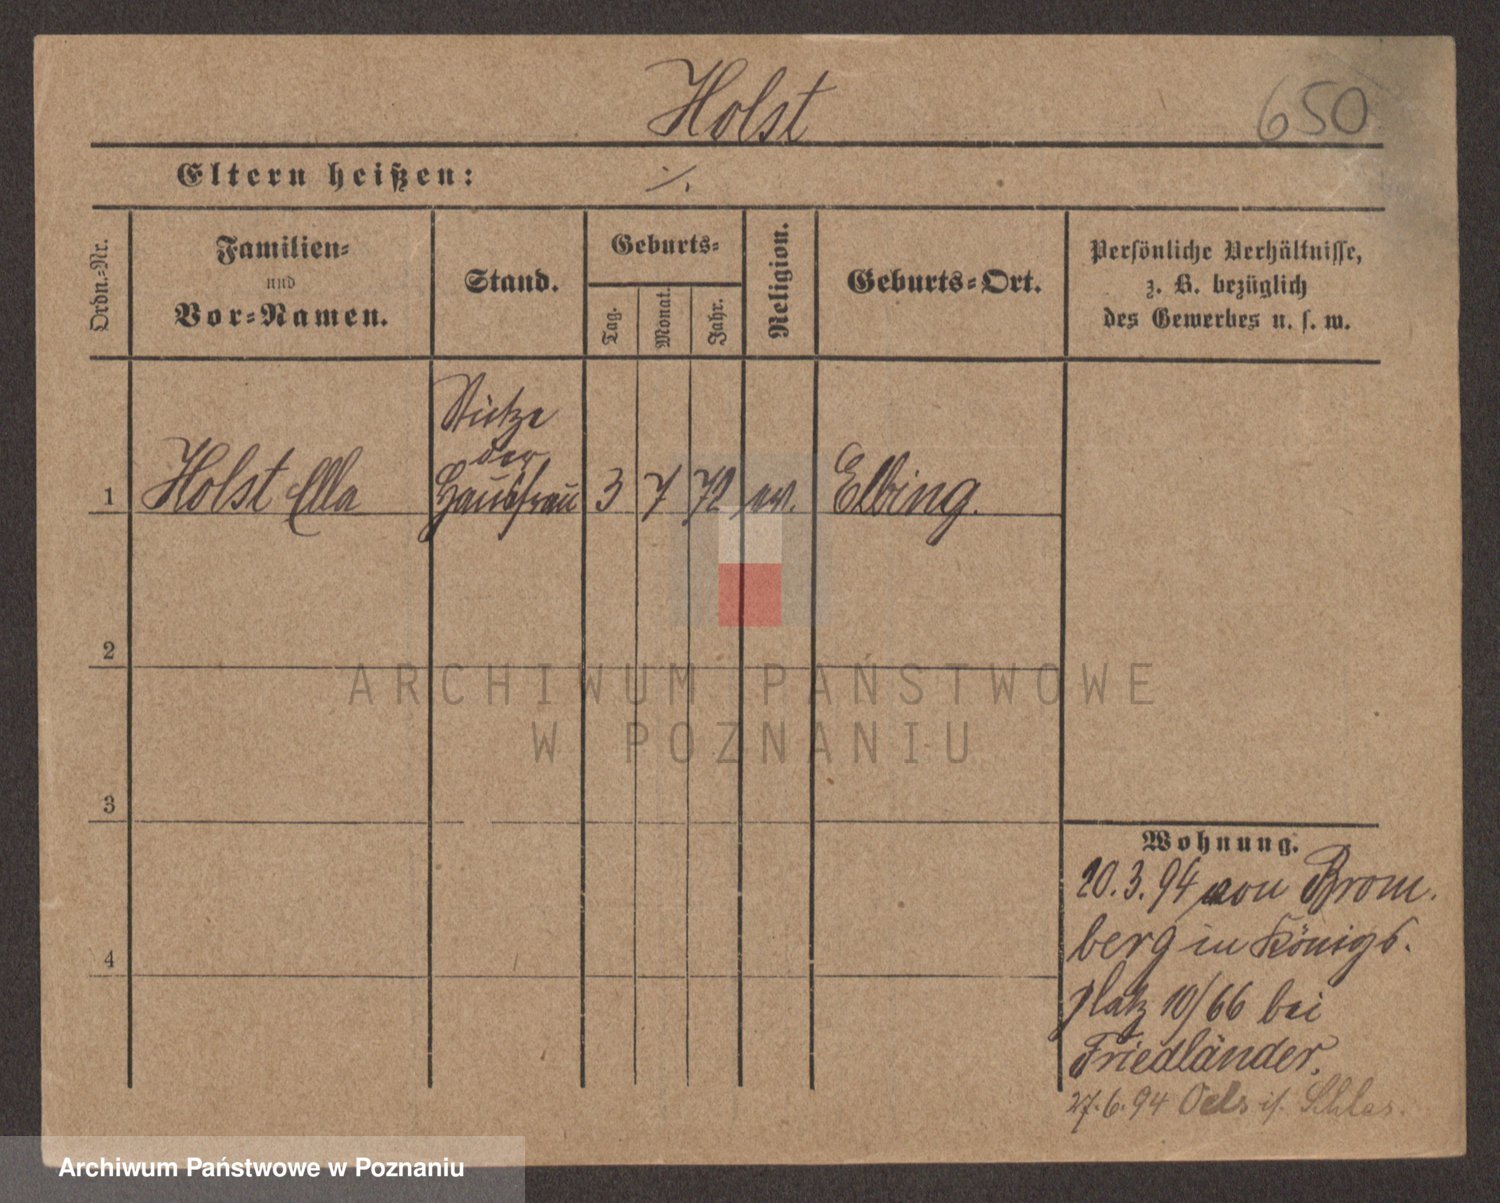 Holst
650
Eltern heißen: ·/.
Ordn.-Nr.
Familien-
und
Vor-Namen.
Stand.
Geburts-
Tag.
Monat.
Jahr.
Religion.
Geburts-Ort.
Persönliche Verhältnisse,
z. B. bezüglich
des Gewerbes u. s. w.
Stütze
der
1 Holst Ella Hausfrau 3 7 72 ev. Elbing.
2
3
4
Wohnung.
20.3.94 von Brom.
berg in Königs.
platz 10/66 bei
Friedländer.
27.6.94 Oels i/. Schles.
ARCHIWUM PAŃSTWOWE
W POZNANIU
Archiwum Państwowe w Poznaniu